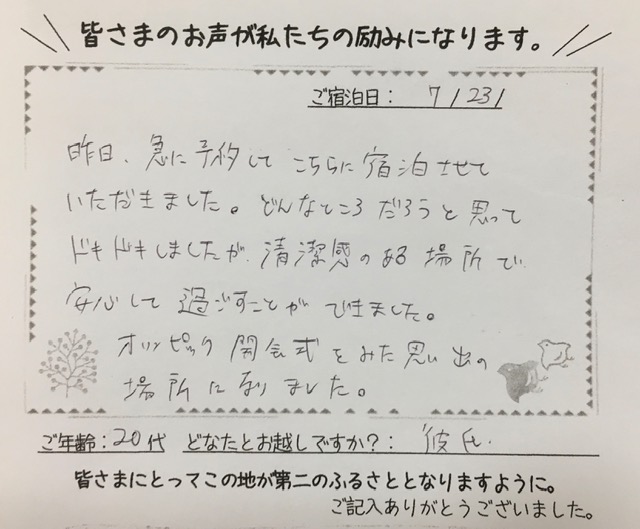 皆さまのお声が私たちの励みになります。
ご宿泊日： 7/23/
昨日、急に予約して こちらに宿泊させて
いただきました。どんなところだろうと思って
ドキドキしましたが、清潔感のある場所で
安心して過ごすことができました。
オリンピック開会式をみた思い出の
場所になりました。
ご年齢：20代 どなたとお越しですか？： 彼氏.
皆さまにとってこの地が第二のふるさととなりますように。
ご記入ありがとうございました。